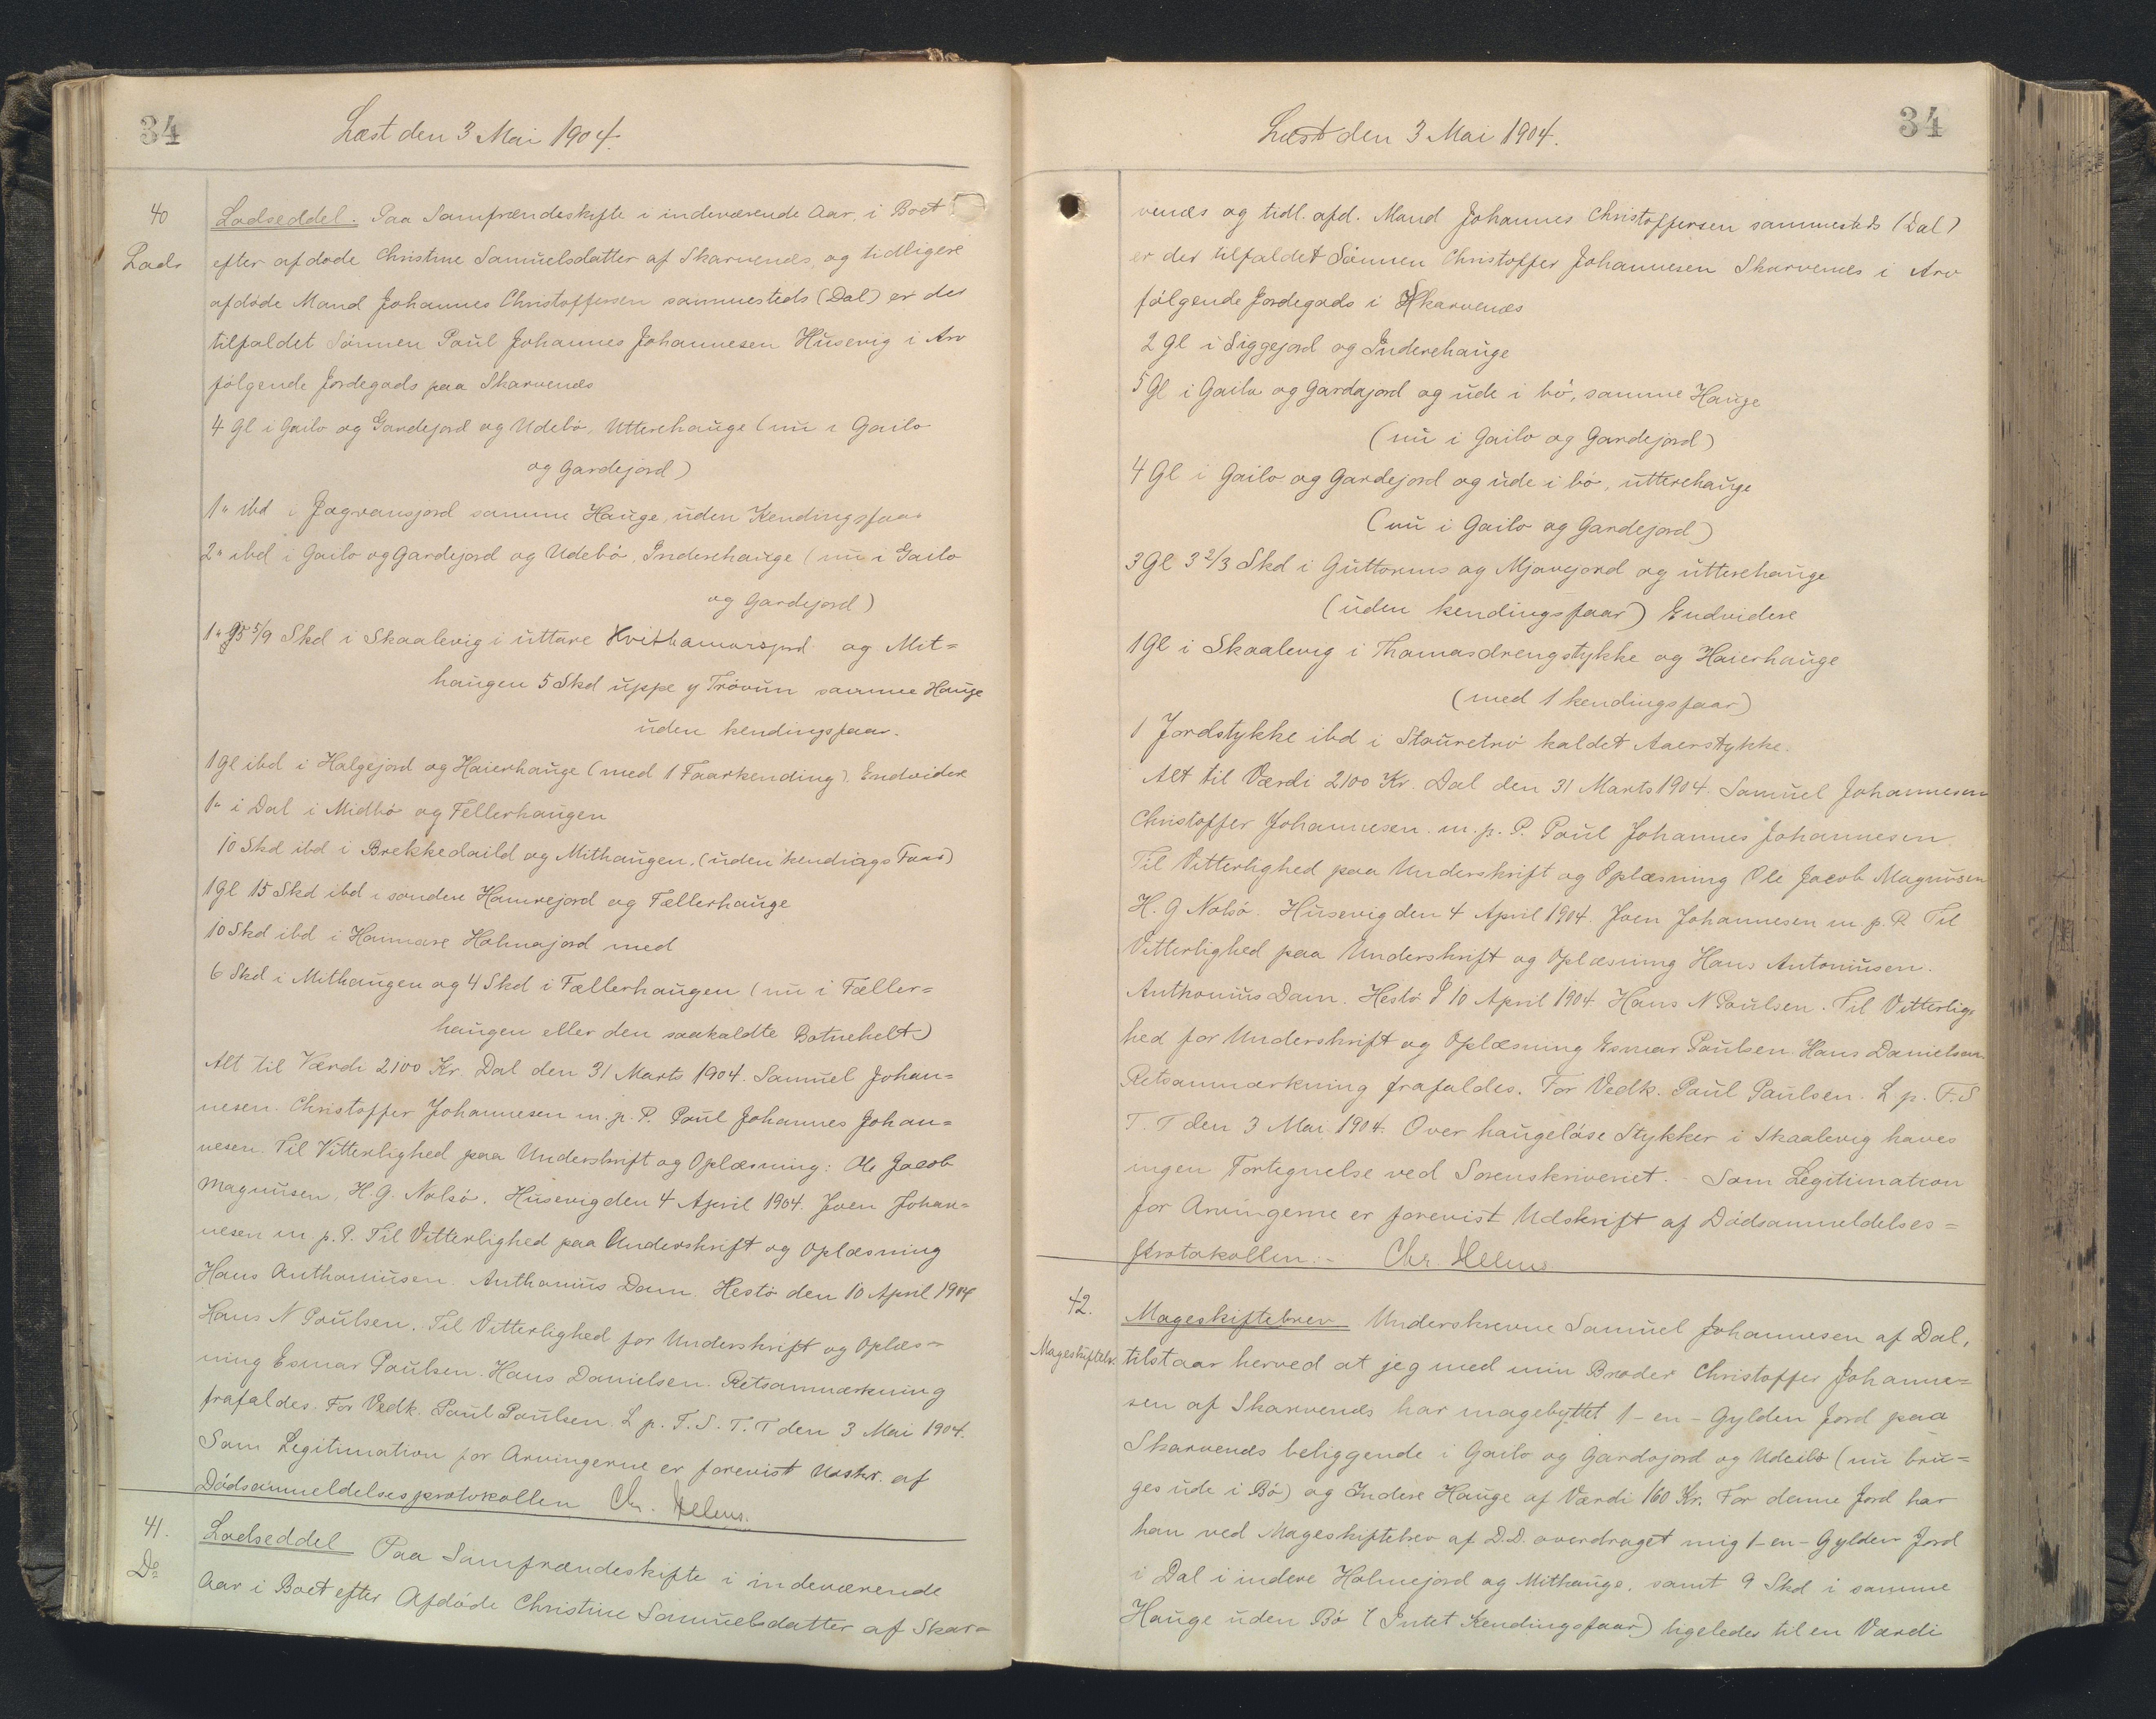 34
Læst den 3 Mai 1904.
40
Lods
Lodseddel. Paa Samfrændeskifte i indeværende Aar i Boet
efter afdøde Christine Samuelsdatter af Skarvenæs, og tidligere
afdøde Mand Johannes Christoffersen sammesteds (Dal) er der
tilfaldet Sønnen Poul Johannes Johannesen Húsevig i Arv
følgende Jordegods paa Skarvenæs
4 Gl i Gailo og Gardejord og Udebø, Utterehaúge (nú i Gailo
og Gardejord)
1 " ibd i Jagvansjord samme Haúge, uden Kendingsfaar
2 " ibd i Gailo og Gardejord og Udebø, Inderehaúge (nú i Gailo
og Gardejord)
1 " 5 5/9 Skd i Skaalevig i úttare Hvithamarsjord og Mit=
haúgen 5 Skd úppe y Trøvún samme Haúge
uden kendingsfaar.
1 Gl ibd i Halgejord og Haierhaúge (med 1 Faarkending). Endvidere
1 " i Dal i Midbø og Fellerhaúgen
10 Skd ibd i Brekkedaild og Mithaúgen. (úden kendings Faar)
1 Gl 15 Skd ibd i søndere Hamrejord og Fællerhaúge
10 Skd ibd i Haimare Holmajord med
6 Skd i Mithaúgen og 4 Skd i Fællerhaúgen (nú i Fæller=
haúgen eller den saakaldte Botnehelt)
Alt til Værdi 2100 Kr. Dal den 31 Marts 1904. Samúel Johan=
nesen. Christoffer Johannesen m. p. P. Poúl Johannes Johan=
nesen. Til Vitterlighed paa Underskrift og Oplæsning: Ole Jacob
Magnúsen, H. G. Nolsø. Húsevig den 4 April 1904. Joen Johan=
nesen m p. P. Til Vitterlighed paa Underskrift og Oplæsning
Hans Anthoniúsen. Anthoniús Dam. Hestø den 10 April 1904
Hans N Poúlsen. Til Vitterlighed for Underskrift og Oplæs=
ning Esmar Poúlsen. Hans Danielsen. Retsanmærkning
frafaldes. For Vedk. Poúl Poúlsen. L p. F. S. T. T den 3 Mai 1904.
Som Legitimation for Arvingerne er forevist Udskr. af
Dødsanmeldelsesprotokollen Chr.
41.
Do
Lodseddel Paa Samfrændeskifte i indeværende
Aar i Boet efter Afdøde Christine Samúelsdatter af Skar=
34
Læst den 3 Mai 1904.
venæs og tidl. afd. Mand Johannes Christoffersen sammesteds (Dal)
er der tilfaldet Sønnen Christoffer Johannesen Skarvenæs i Arv
følgende Jordegods i Skarvenæs
2 Gl i Siggejord og Inderehaúge
5 Gl i Gailo og Gardajord og úde i bø, samme Haúge
(nú i Gailo og Gardejord)
4 Gl i Gailo og Gardejord og úde i bø, útterehaúge
(nú i Gailo og Gardejord)
3 Gl 3 2/3 Skd i Gúttorms og Mjavejord og útterehaúge
(úden kendingsfaar) Endvidere
1 Gl i Skaalevig i Thomasdrengstykke og Haierhaúge
(med 1 kendingsfaar)
1 Jordstykke ibd i Stouretrø kaldet Aaerstykke.
Alt til Værdi 2100 Kr. Dal den 31 Marts 1904. Samúel Johannesen
Christoffer Johannesen. m. p. P. Poúl Johannes Johannesen.
Til Vitterlighed paa Underskrift og Oplæsning Ole Jacob Magnúsen
H. G Nolsø. Húsevig den 4 April 1904. Joen Johannesen m p. P. Til
Vitterlighed paa Underskrift og Oplæsning Hans Antoniúsen.
Anthoniús Dam. Hestø d 10 April 1904 Hans N Poúlsen. Til Vitterlig=
hed for Underskrift og Oplæsning Esmar Poúlsen. Hans Danielsen.
Retsanmærkning frafaldes. For Vedk. Poúl Poúlsen. L. p. F. S
T. T den 3 Mai 1904. Over haúgeløse Stykker i Skaalevig haves
ingen Fortegnelse ved Sorenskriveriet. - Som Legitimation
for Arvingerne er forevist Udskrift af Dødsanmeldelses=
protokollen. - Chr.
42.
Mageskiftebr.
Mageskiftebrev Underskrevne Samúel Johannesen af Dal,
tilstaar herved at jeg med min Broder Christoffer Johanne=
sen af Skarvenæs har magebyttet 1 - en - Gylden Jord paa
Skarvenæs beliggende i Gailo og Gardajord og Udeibø (nú brú=
ges úde i Bø) og Indere Haúge af Værdi 160 Kr. For denne Jord har
han ved Mageskiftebrev af D.D. overdraget mig 1 - en - Gylden Jord
i Dal i indere Holmejord og Mithaúge, samt 9 Skd i samme
Haúge úden Bø (Intet Kendingsfaar) ligeledes til en Værdi